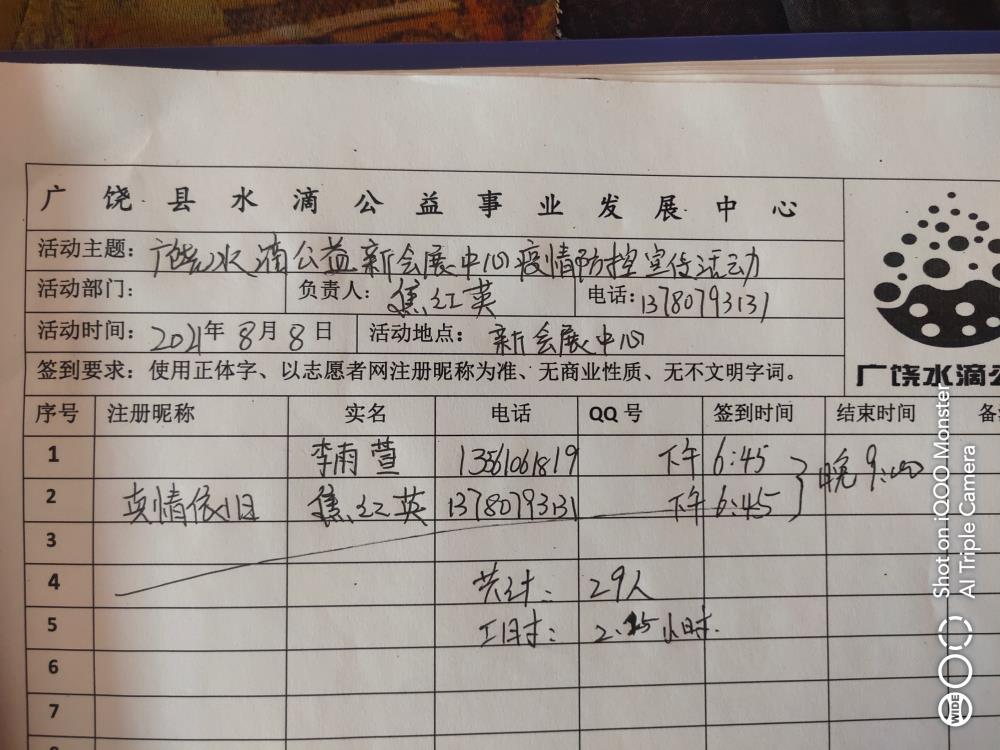 广饶县水滴公益事业发展中心
活动主题：广饶水滴公益新会展中心疫情防控宣传活动
活动部门： 负责人：焦红英 电话：13780793131
活动时间：2021年8月8日 活动地点：新会展中心
签到要求：使用正体字、以志愿者网注册昵称为准、无商业性质、无不文明字词。
广饶水滴公
序号 注册昵称 实名 电话 QQ号 签到时间 结束时间 备
1 李雨萱 13561061819 下午6:45 晚9:00
2 真情依旧 焦红英 13780793131 下午6:45
3
4 共计：29人
5 工时：2.25小时.
6
7
Shot on iQOO Monster
AI Triple Camera
WIDE